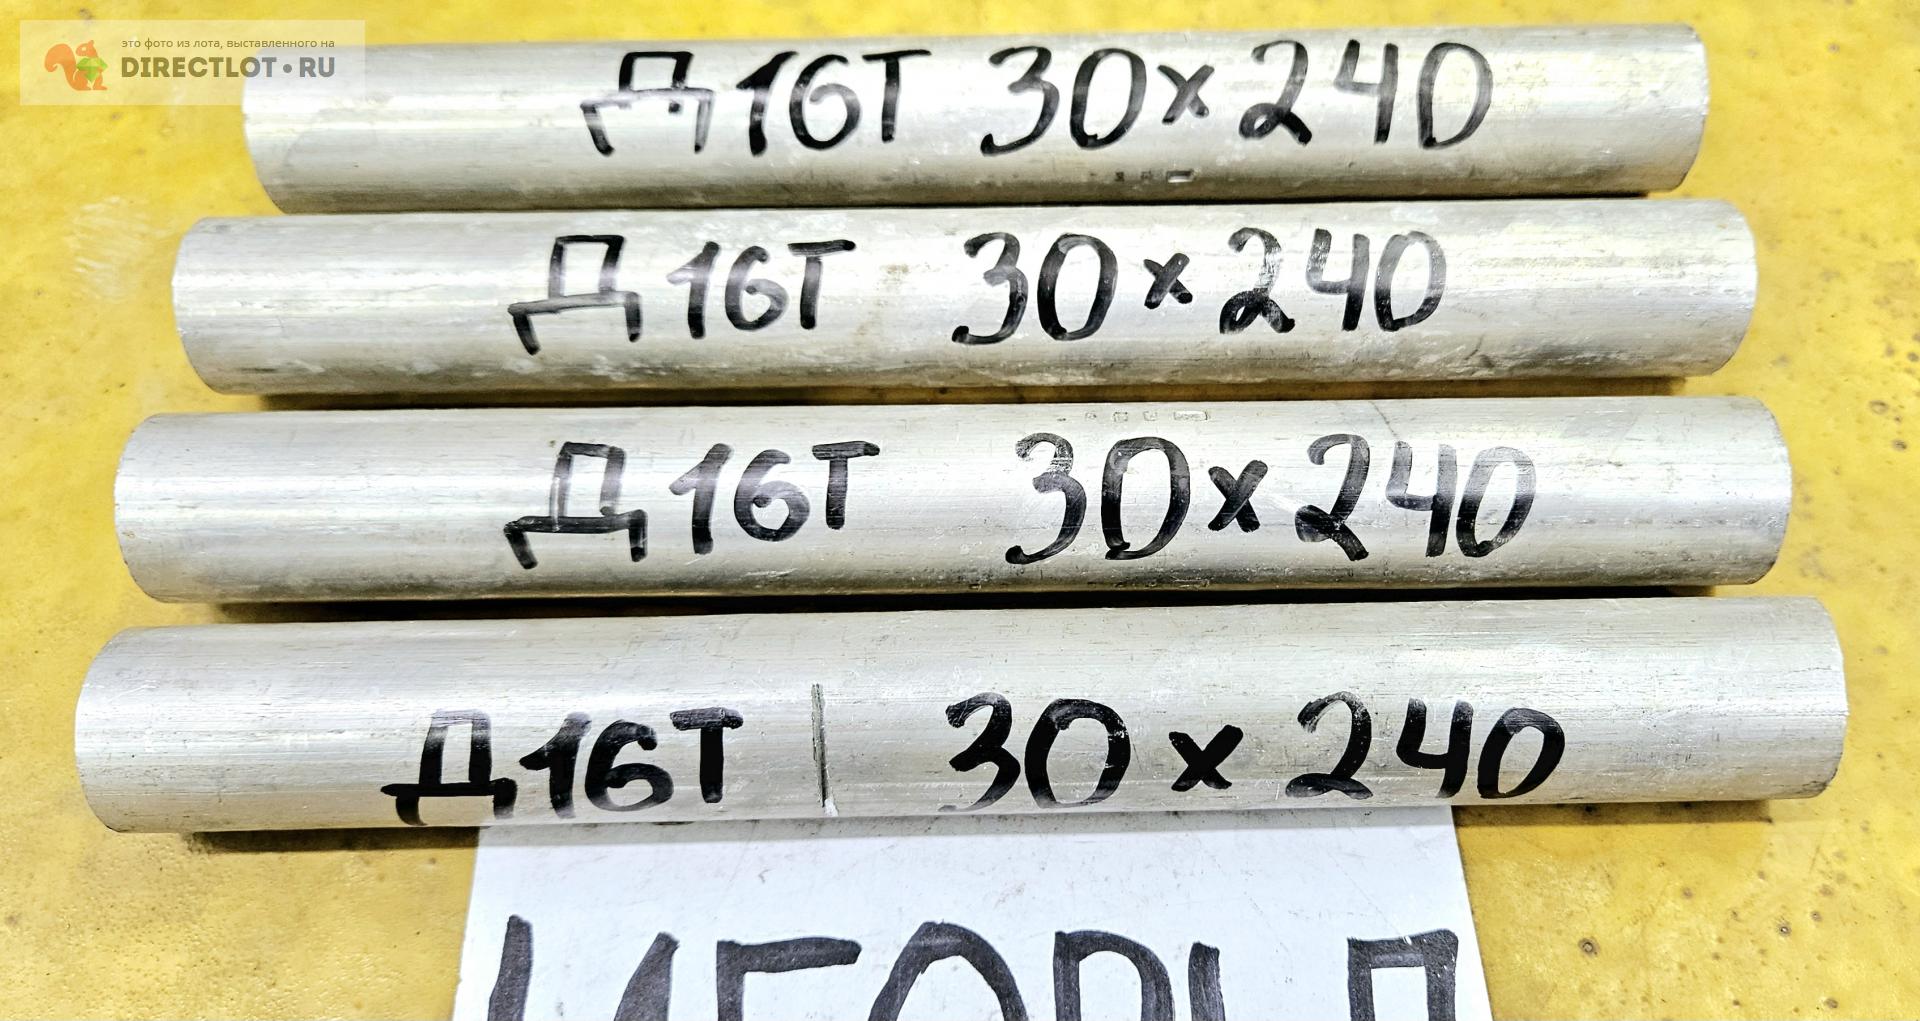 это фото из лота, выставленного на
DIRECTLOT•RU
Д16Т 30x240
Д16Т 30x240
Д16Т 30x240
Д16Т 30x240